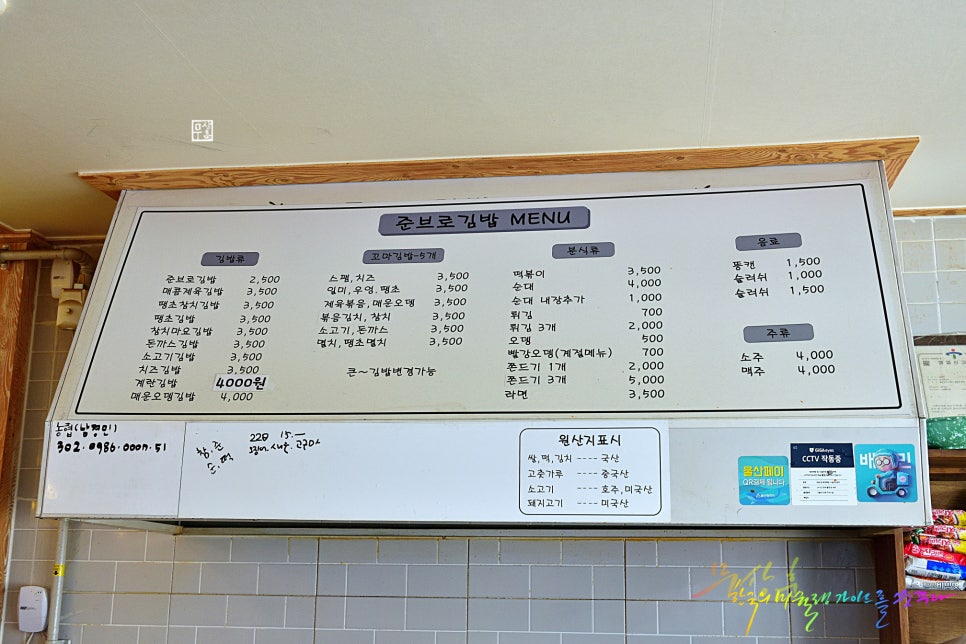 준브로김밥 MENU
김밥류
준브로김밥 2,500
매콤제육김밥 3,500
땡초참치김밥 3,500
땡초김밥 3,500
참치마요김밥 3,500
돈까스김밥 3,500
소고기김밥 3,500
치즈김밥 3,500
계란김밥 4000원
매운오뎅김밥 4,000
꼬마김밥-5개
스팸,치즈 3,500
일미,우엉,땡초 3,500
제육볶음,매운오뎅 3,500
볶음김치,참치 3,500
소고기,돈까스 3,500
멸치,땡초멸치 3,500
큰~김밥변경가능
분식류
떡볶이 3,500
순대 4,000
순대 내장추가 1,000
튀김 700
튀김 3개 2,000
오뎅 500
빨강오뎅(계절메뉴) 700
쫀드기 1개 2,000
쫀드기 3개 5,000
라면 3,500
음료
뚱캔 1,500
슬러쉬 1,000
슬러쉬 1,500
주류
소주 4,000
맥주 4,000
농협(남경민)
302.0986.0007.51
220 15.—
원산지표시
쌀,떡,김치 ---- 국산
고춧가루 ---- 중국산
소고기 ---- 호주,미국산
돼지고기 ---- 미국산
울산페이
QR결제 됩니다
GiGAeyes
CCTV 작동중
한국의 미슐랭 가이드를 꿈꾸다